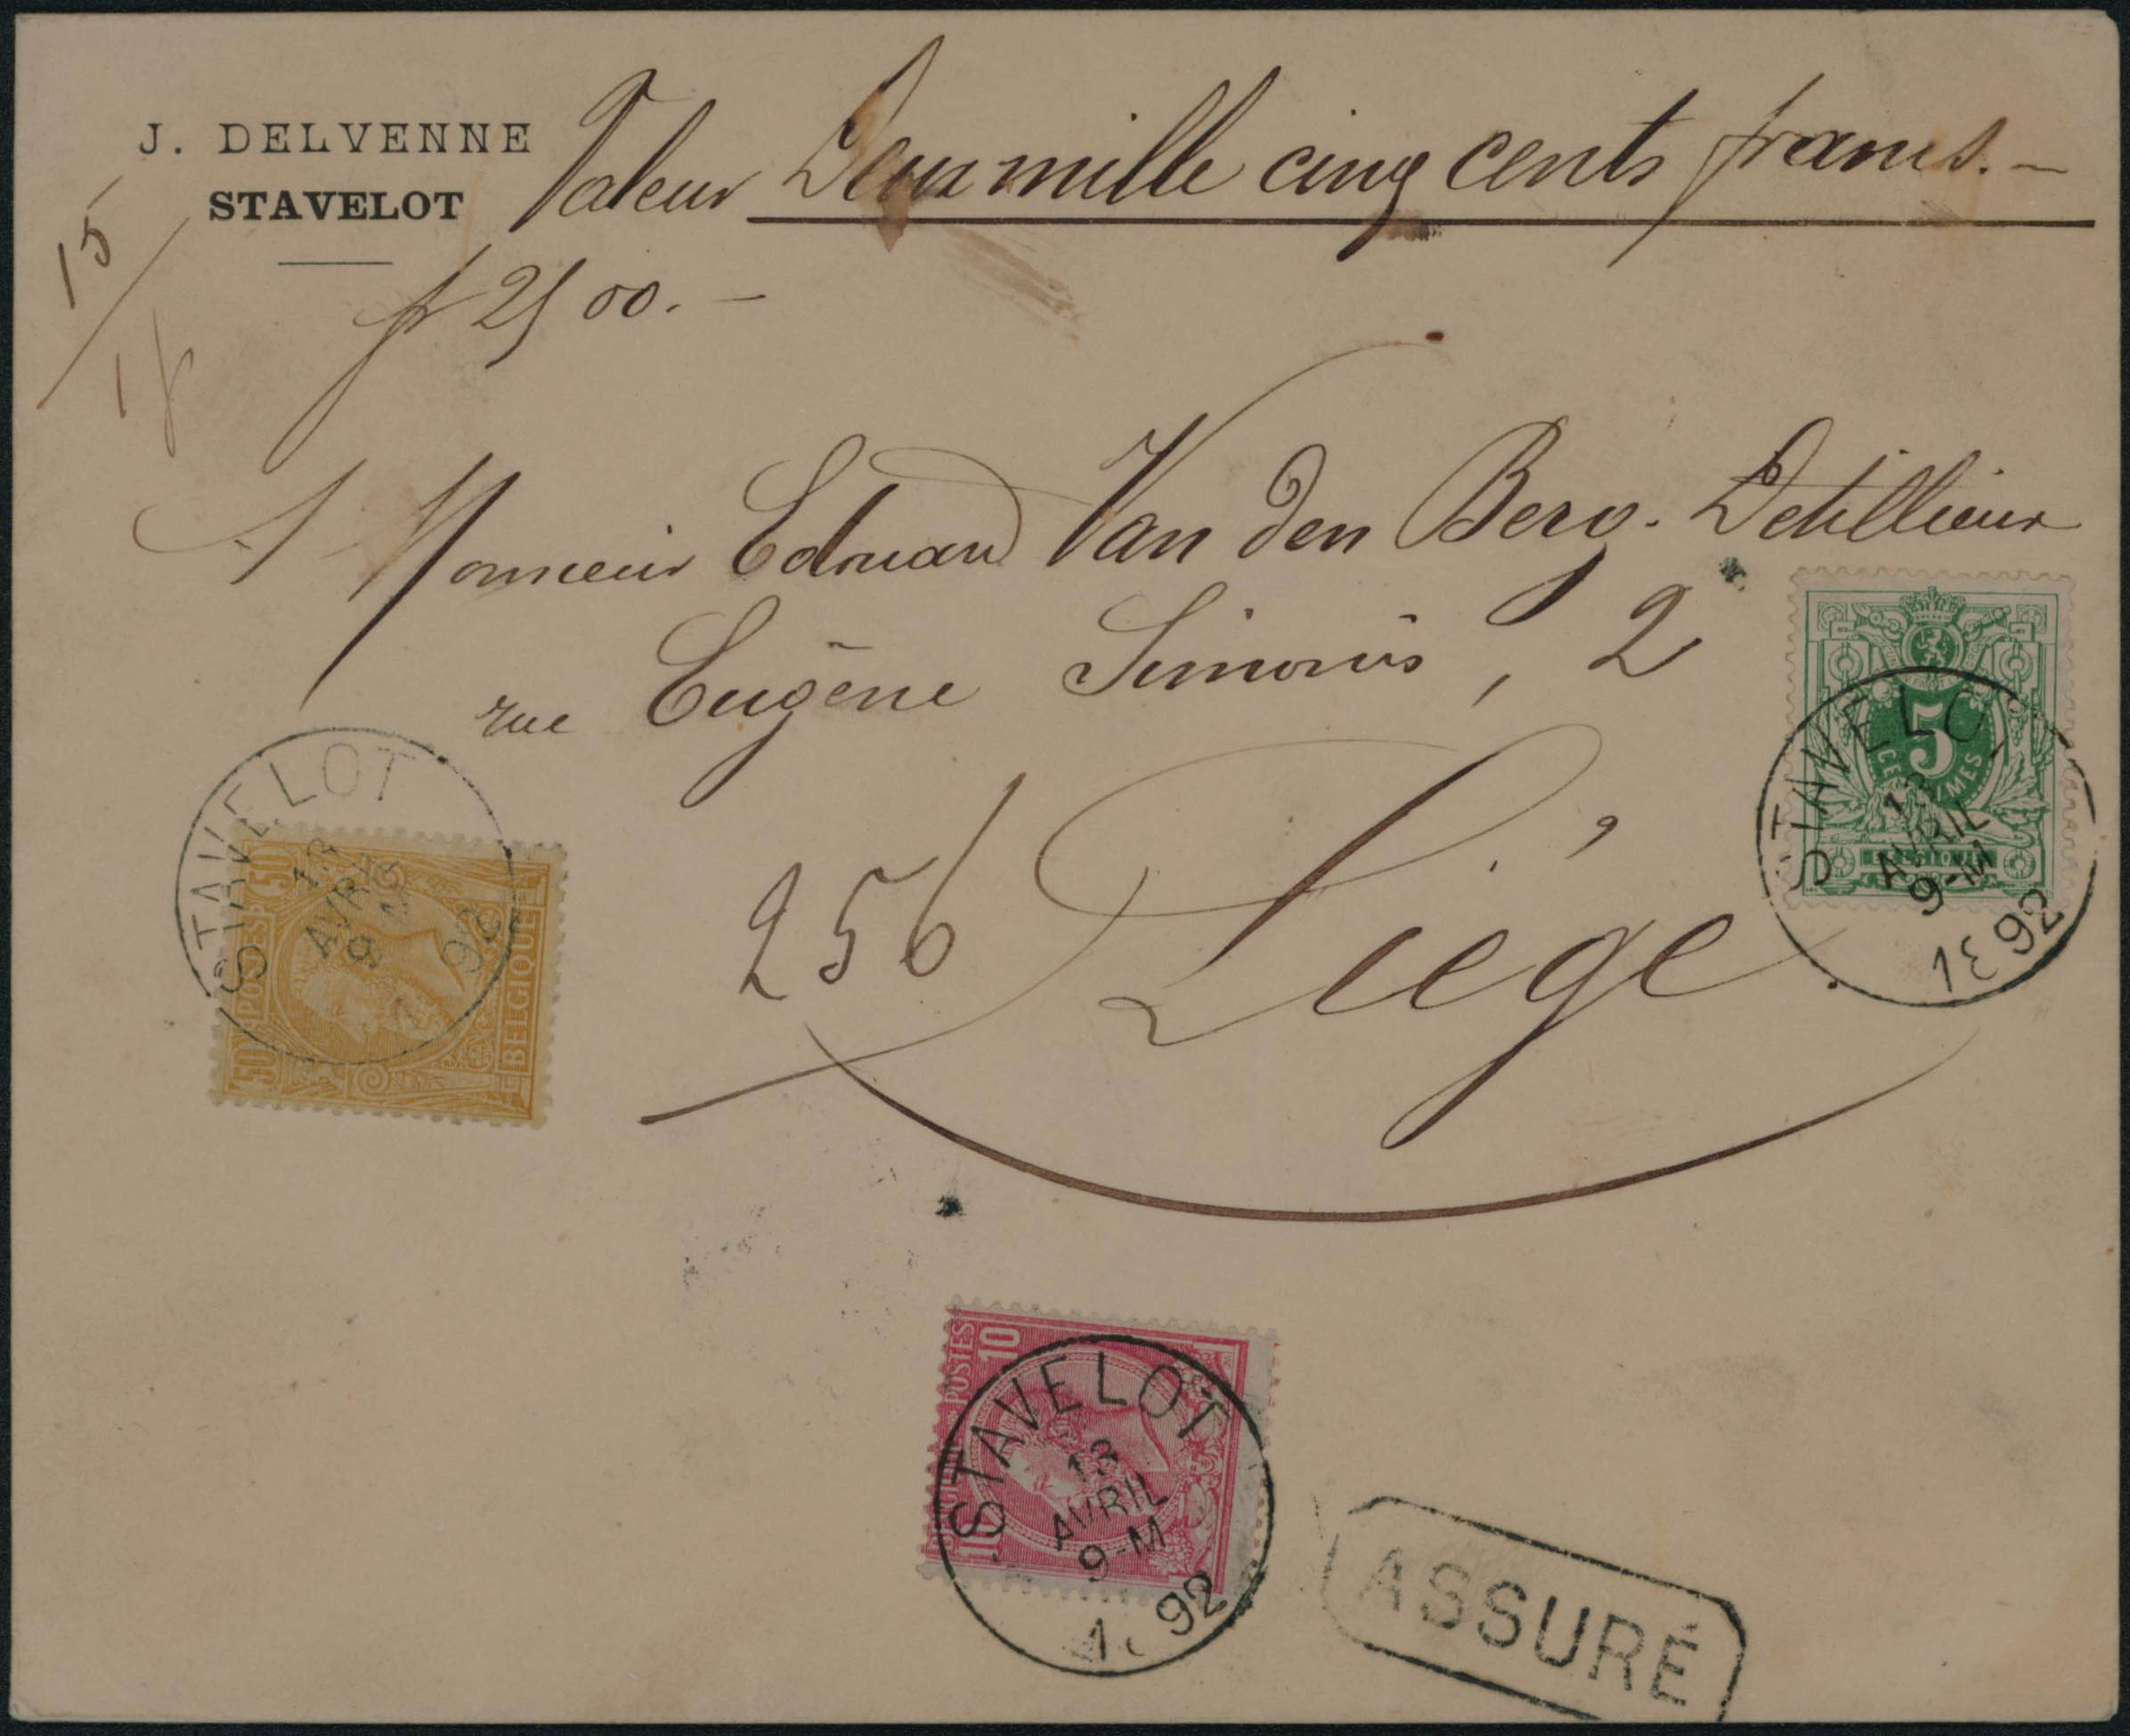 J. DELVENNE
STAVELOT
Valeur Deux mille cinq cents francs.-
fr 2500.-
15
A Monsieur Edouard Van den Berg. Detillieux
rue Eugène Simonis, 2
256
Liége
STAVELOT
13
AVRIL
9-M
1E 92
5
CENTIMES
BELGIQUE
STAVELOT
13
AVRIL
9 M
1 92
50 POSTES 50
BELGIQUE
STAVELOT
13
AVRIL
9-M
1 92
POSTES 10
10
ASSURÉ